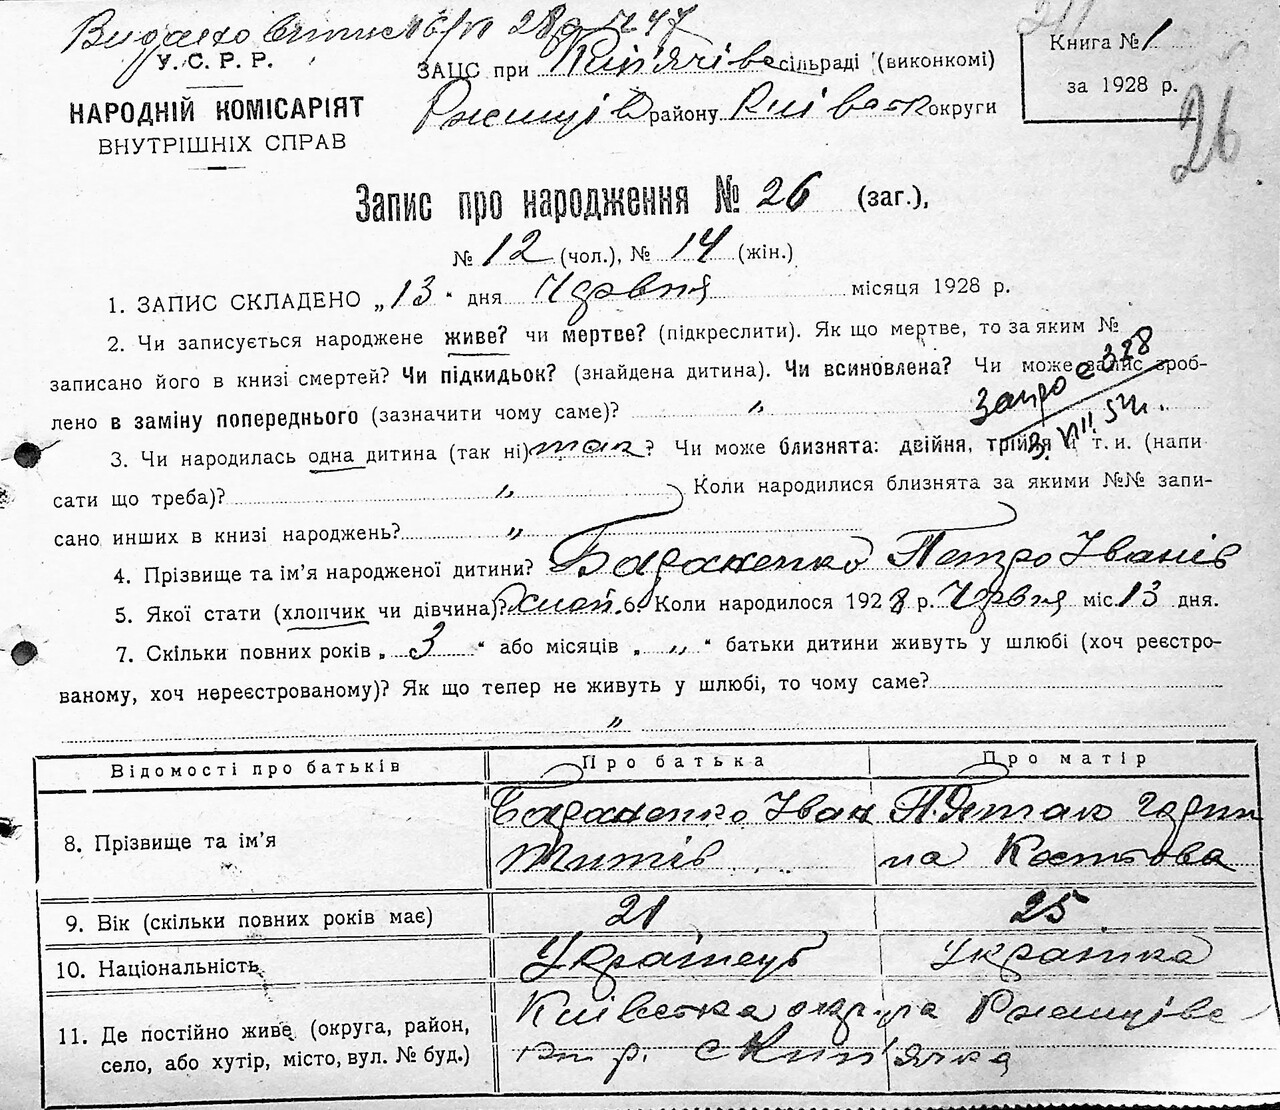 Видано
У. С. Р. Р.
НАРОДНІЙ КОМІСАРІЯТ
ВНУТРІШНІХ СПРАВ
ЗАЦС при Кип'ячівс сільраді (виконкомі)
Ржищів району Київськ округи
Книга № 1
за 1928 р.
26
Запис про народження № 26 (заг.),
№ 12 (чол.), № 14 (жін.)
1. ЗАПИС СКЛАДЕНО „13" дня Червня місяця 1928 р.
2. Чи записується народжене живе? чи мертве? (підкреслити). Як що мертве, то за яким №
записано його в книзі смертей? Чи підкидьок? (знайдена дитина). Чи всиновлена? Чи може запис зроб-
лено в заміну попереднього (зазначити чому саме)? „
3. Чи народилась одна дитина (так ні) так? Чи може близнята: двійня, трійня й т. и. (напи
сати що треба)? „ Коли народилися близнята за якими №№ запи-
сано инших в книзі народжень? „
4. Прізвище та ім'я народженої дитини? Бараненко Петро Іванів
5. Якої стати (хлопчик чи дівчина)? хлоп. 6. Коли народилося 1928 р. Червня міс. 13 дня.
7. Скільки повних років „ 3 " або місяців „ „ " батьки дитини живуть у шлюбі (хоч реєстро-
ваному, хоч нереєстрованому)? Як що тепер не живуть у шлюбі, то чому саме?
„
Відомості про батьків Про батька Про матір
8. Прізвище та ім'я Бараненко Іван Титів П.Ятако Горпина Костова
9. Вік (скільки повних років має) 21 25
10. Національність Українець Українка
11. Де постійно живе (округа, район, Київська округа Ржищівс
село, або хутір, місто, вул. № буд.) кий р. с Кип'ячка